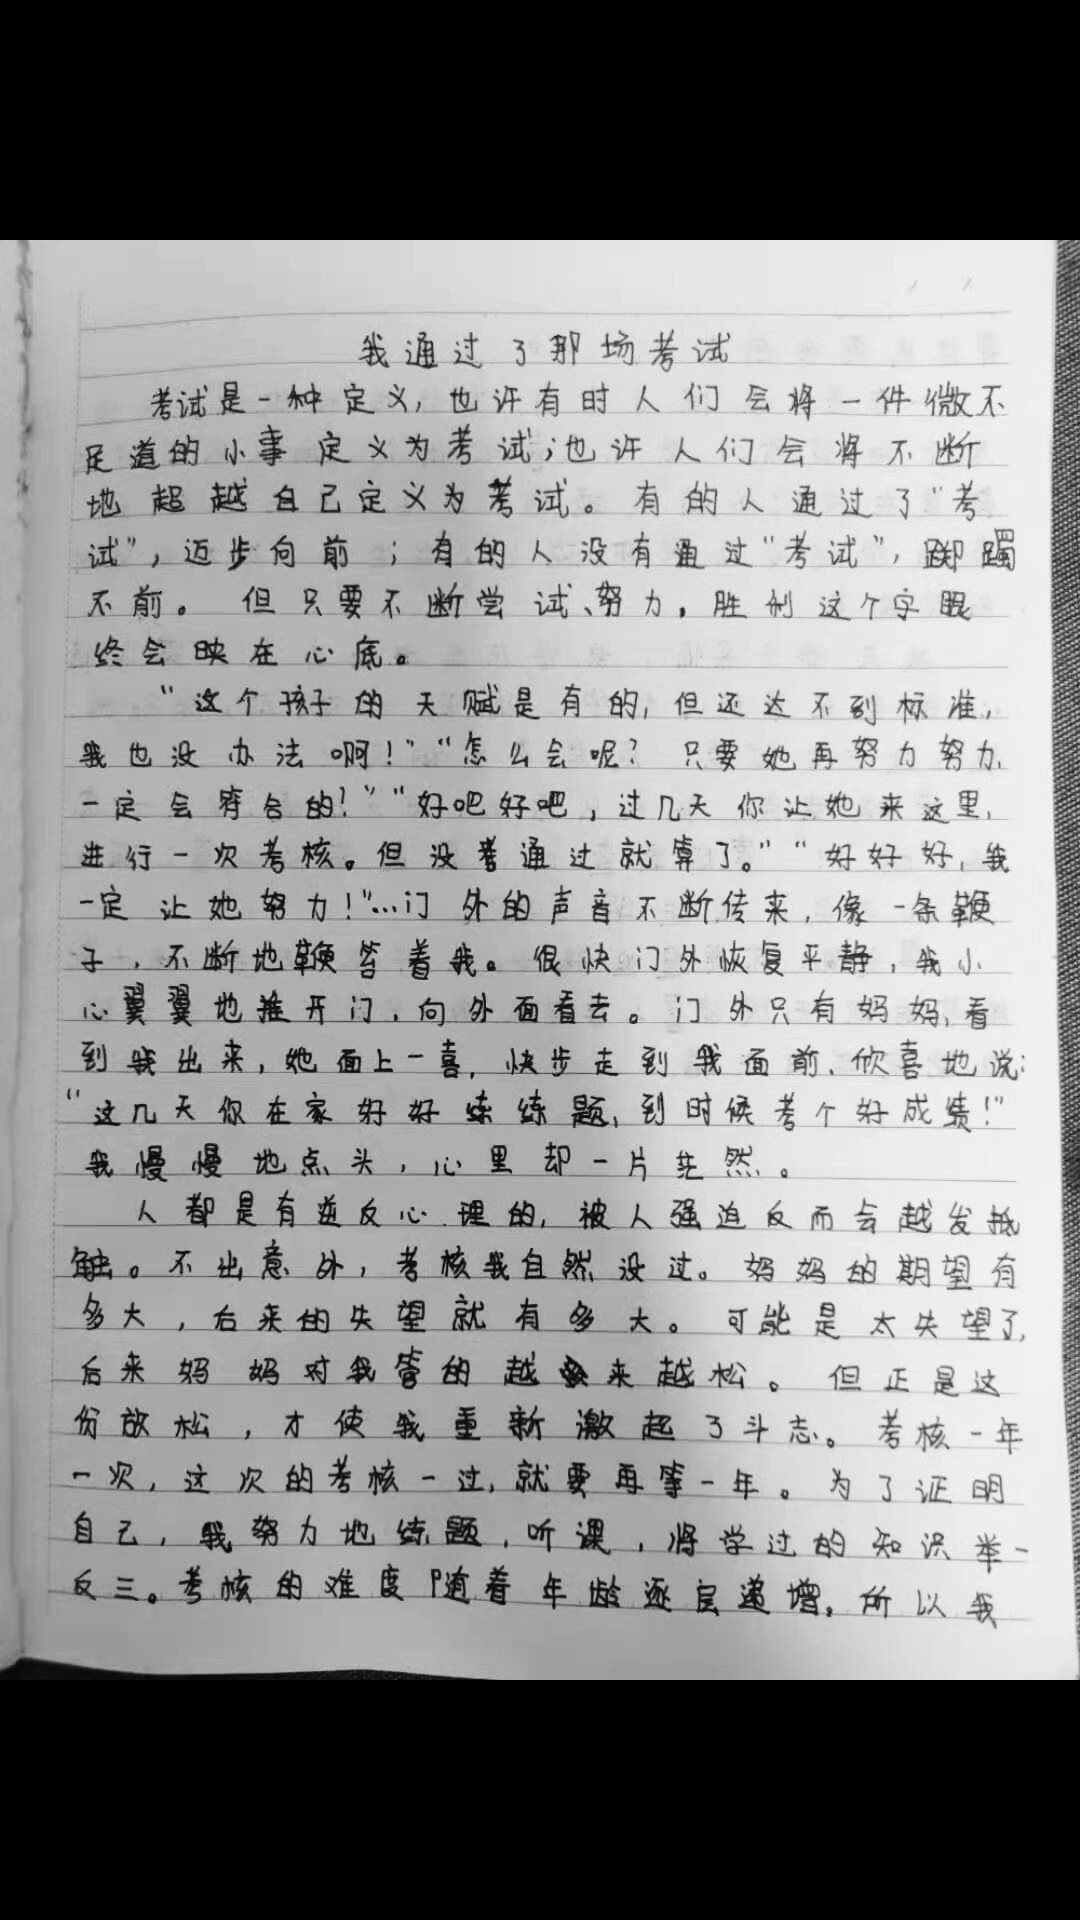 我通过了那场考试
考试是一种定义，也许有时人们会将一件微不
足道的小事定义为考试；也许人们会将不断
地超越自己定义为考试。有的人通过了“考
试”，迈步向前；有的人没有通过“考试”，踯躅
不前。但只要不断尝试、努力，胜利这个字眼
终会映在心底。
“这个孩子的天赋是有的，但还达不到标准，
我也没办法啊！”“怎么会呢？只要她再努力努力，
一定会符合的！”“好吧好吧，过几天你让她来这里，
进行一次考核。但没考通过就算了。”“好好好，我
一定让她努力！”…门外的声音不断传来，像一条鞭
子，不断地鞭笞着我。很快门外恢复平静，我小
心翼翼地推开门，向外面看去。门外只有妈妈，看
到我出来，她面上一喜，快步走到我面前，欣喜地说：
“这几天你在家好好练练题，到时候考个好成绩！”
我慢慢地点头，心里却一片茫然。
人都是有逆反心理的，被人强迫反而会越发抵
触。不出意外，考核我自然没过。妈妈的期望有
多大，后来的失望就有多大。可能是太失望了，
后来妈妈对我管的越来越松。但正是这
份放松，才使我重新激起了斗志。考核一年
一次，这次的考核一过，就要再等一年。为了证明
自己，我努力地练题，听课，将学过的知识举一
反三。考核的难度随着年龄逐层递增，所以我